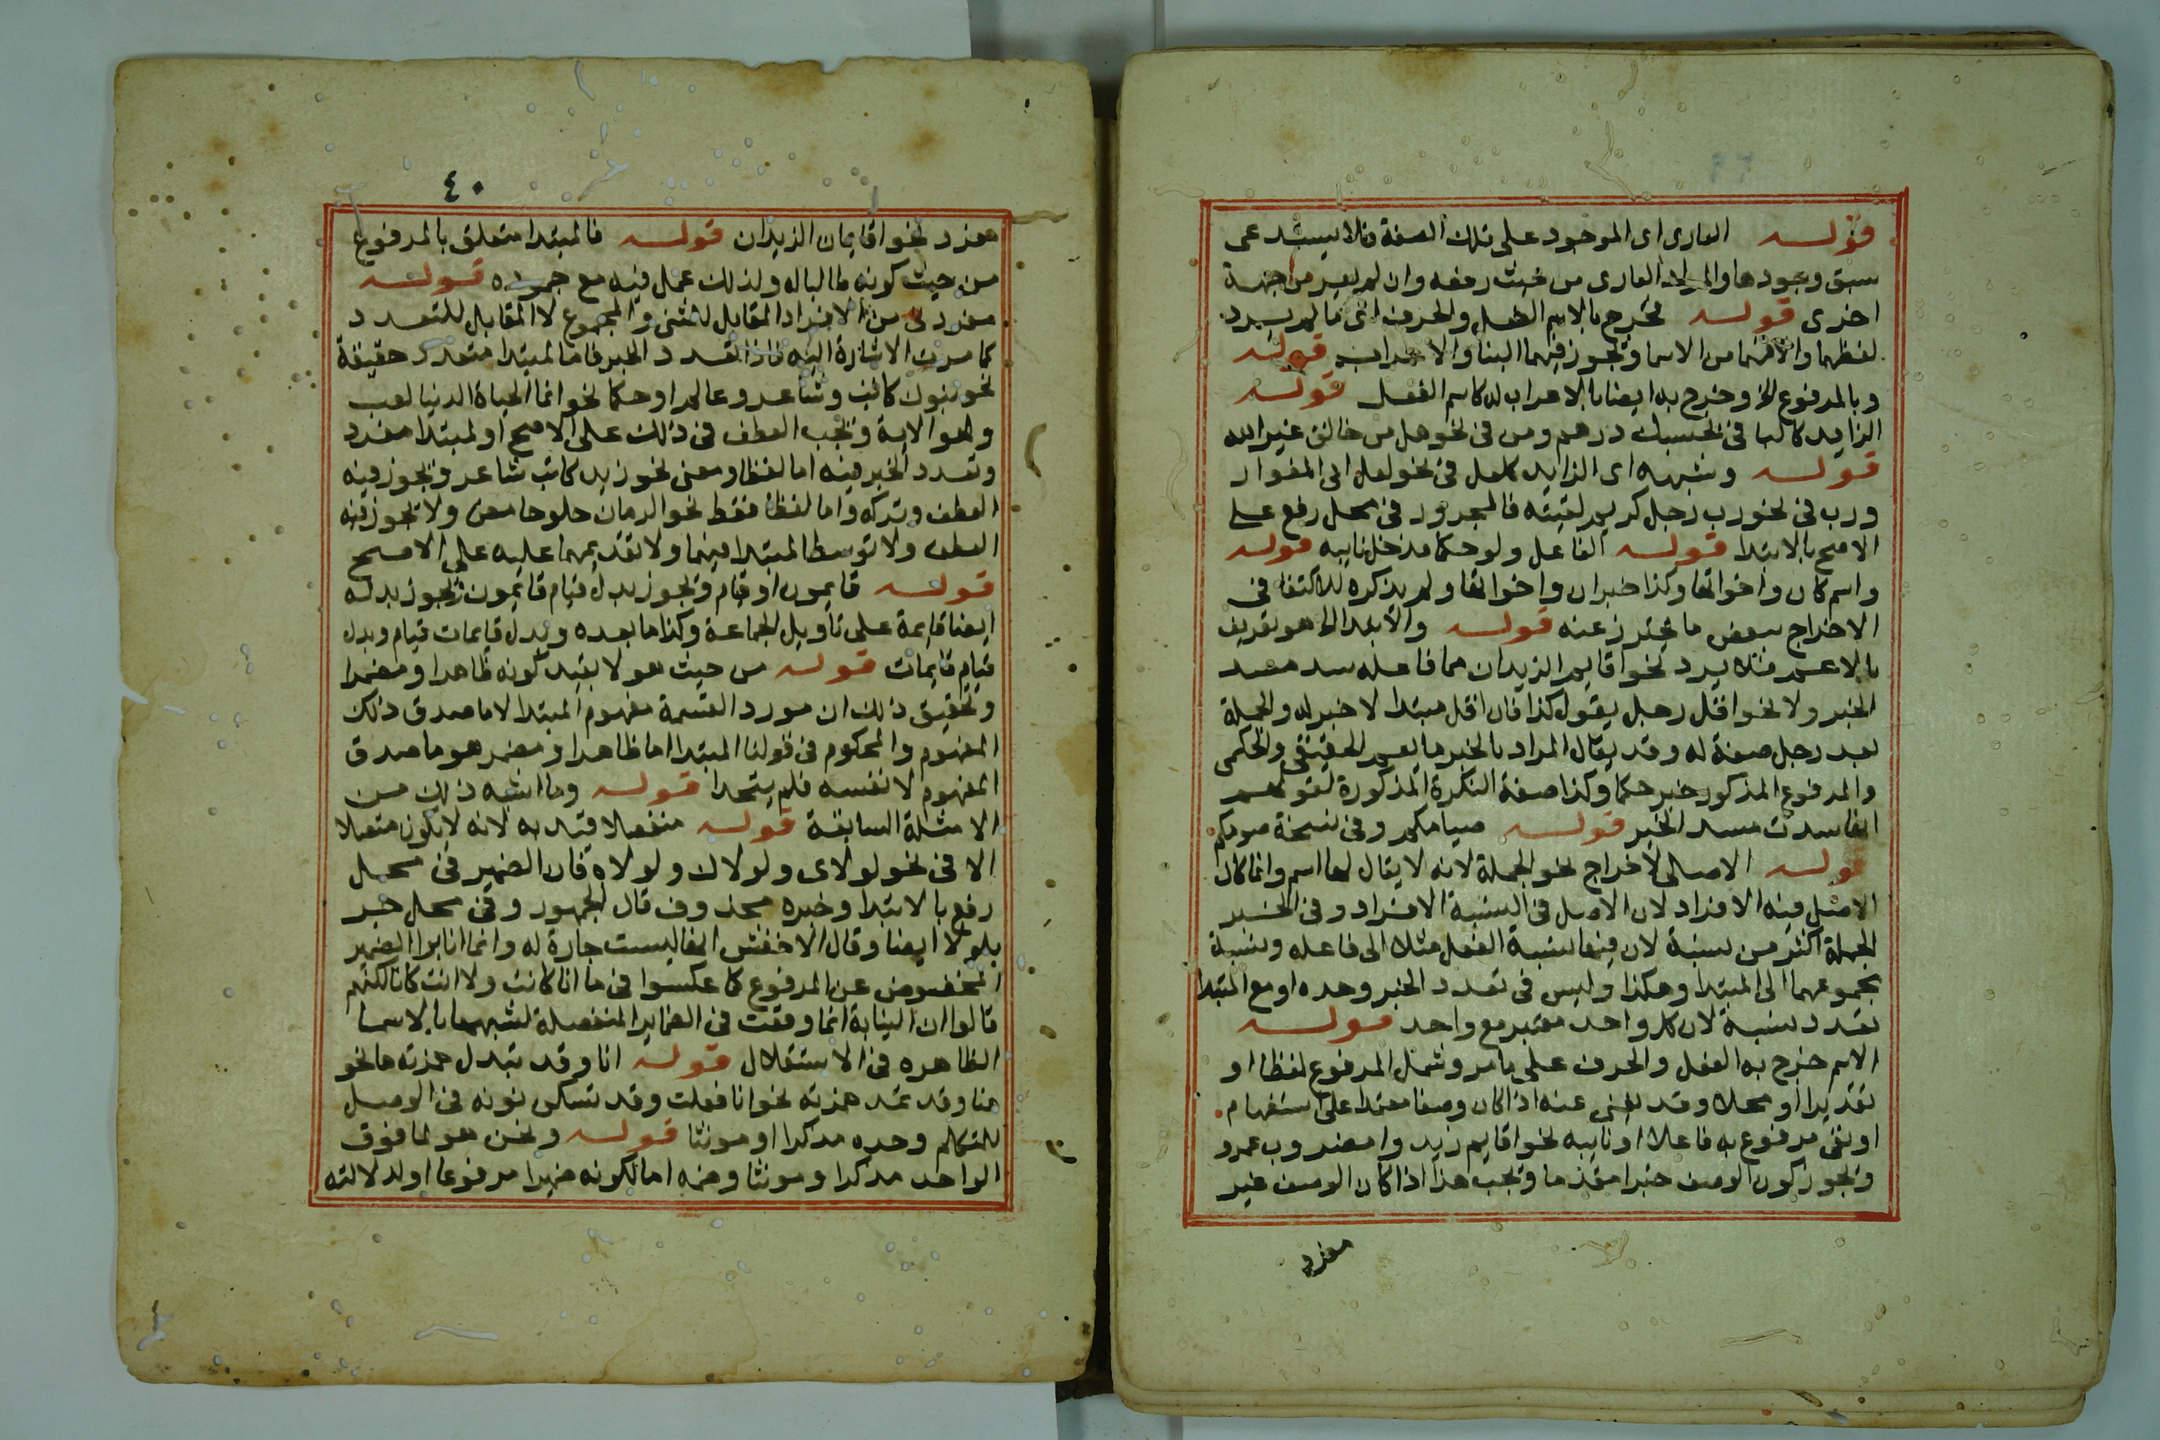 قوله العارى اى الموجود على تلك الصفة فلا يستدعى
سبق وجودها والمراد العارى من حيث رفعه وان لم يعر من جهة
اخرى قوله فخرج بالاسم الفعل والحرف اى ما لم يرد
لفظهما والا فهما من الاسما ويجوز فيهما البنا والاعراب قوله
وبالمرفوع الخ وخرج به ايضا بالاعراب له كاسم الفعل قوله
الزايد كالبا فى بحسبك درهم ومن فى نحو هل من خالق غير الله
قوله وشبهه اى الزايد كلعل فى نحو لعل ابى المغوار
ورب فى نحو رب رجل كريم لقيته فالمجرور فى محل رفع على
الاصح بالابتدا قوله الفاعل ولو حكما فدخل نايبه قوله
واسم كان واخواتها وكذا خبر ان واخواتها ولم يذكره للاكتفا فى
الاخراج ببعض ما يحترز عنه قوله والابتدا الخ هو تعريف
بالاعم فلا يرد نحو اقايم الزيدان مما فاعله سد مسد
الخبر ولا نحو اقل رجل يقول كذا فان اقل مبتدا لا خبر له والجملة
بعد رجل صفة له وقد يقال المراد بالخبر ما يعم الحقيقى والحكمى
والمرفوع المذكور خبر حكما وكذا صفة النكرة المذكورة لقولهم
انها سدت مسد الخبر قوله صيامكم وفى نسخة صومكم
قوله الاصلى لاخراج نحو الجملة لانه لا يقال لها اسم وانما كان
الاصل فيه الافراد لان الاصل فى النسبة الافراد وفى الخبر
الجملة اكثر من نسبة لان فيها نسبة الفعل مثلا الى فاعله ونسبة
مجموعهما الى المبتدا وهكذا وليس فى تعدد الخبر وحده او مع المبتدا
تعدد نسبة لان كل واحد معتبر مع واحد قوله
الاسم خرج به الفعل والحرف على ما مر وشمل المرفوع لفظا او
تقديرا او محلا وقد يغنى عنه اذا كان وصفا معتمدا على استفهام
او نفى مرفوع به فاعلا او نايبه نحو اقايم زيد وامضروب عمرو
ويجوز كون الوصف خبرا مقدما ويجب هذا اذا كان الوصف غير
مفرد
٤٠
مفرد نحو اقايمان الزيدان قوله فالمبتدا متعلق بالمرفوع
من حيث كونه طالبا له ولذلك عمل فيه مع جموده قوله
مفرد من الافراد المقابل للمثنى والمجموع لا المقابل للتعدد
كما مرت الاشارة اليه فاذا تعدد الخبر فاما لمبتدا متعدد حقيقة
نحو بنوك كاتب وشاعر وعالم او حكما نحو انما الحياة الدنيا لعب
ولهو الاية ويجب العطف فى ذلك على الاصح او لمبتدا مفرد
وتعدد الخبر فيه اما لفظا ومعنى نحو زيد كاتب شاعر ويجوز فيه
العطف وتركه واما لفظا فقط نحو الرمان حلو حامض ولا يجوز فيه
العطف ولا توسط المبتدا بينهما ولا تقديمهما عليه على الاصح
قوله قايمون او قيام ويجوز بدل قيام قايمون ويجوز بدله
ايضا قايمة على تاويل الجماعة وكذا ما بعده وبدل قايمات قيام وبدل
قيام قايمات قوله من حيث هو لا بقيد كونه ظاهرا ومضمرا
وتحقيق ذلك ان مورد القسمة مفهوم المبتدا لا ما صدق ذلك
المفهوم والمحكوم فى قولنا المبتدا اما ظاهر او مضمر هو ما صدق
المفهوم لا نفسه فلم يتحدا قوله وما اشبه ذلك من
الامثلة السابقة قوله منفصلا قيد به لانه لا يكون متصلا
الا فى نحو لولاى ولولاك ولولاه فان الضمير فى محل
رفع بالابتدا وخبره محذوف قال الجمهور وفى محل جر
بلولا ايضا وقال الاخفش انها ليست جارة له وانما انابوا الضمير
المخفوض عن المرفوع كما عكسوا فى ما انا كانت ولا انت كانا لكنهم
قالوا ان النيابة انما وقعت فى الضماير المنفصلة لشبهها بالاسما
الظاهره فى الاستقلال قوله انا وقد تبدل همزته ها نحو
هنا وقد تمد همزته نحو انا فعلت وقد تسكن نونه فى الوصل
للمتكلم وحده مذكرا او مونثا قوله ونحن هو لما فوق
الواحد مذكرا ومونثا وضمه اما لكونه ضميرا مرفوعا او لدلالته